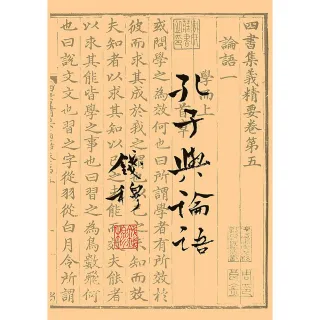 孔子與論語
錢穆
四書集義精要卷第五
論語一
學而上
或問學之為效何也曰所謂學者有所效於
彼而求其成於我之未知而效
夫知者以求其知以能者
以求其能皆學之事也曰習之為鳥數飛何
也曰說文文也習之字從羽從白月令所謂